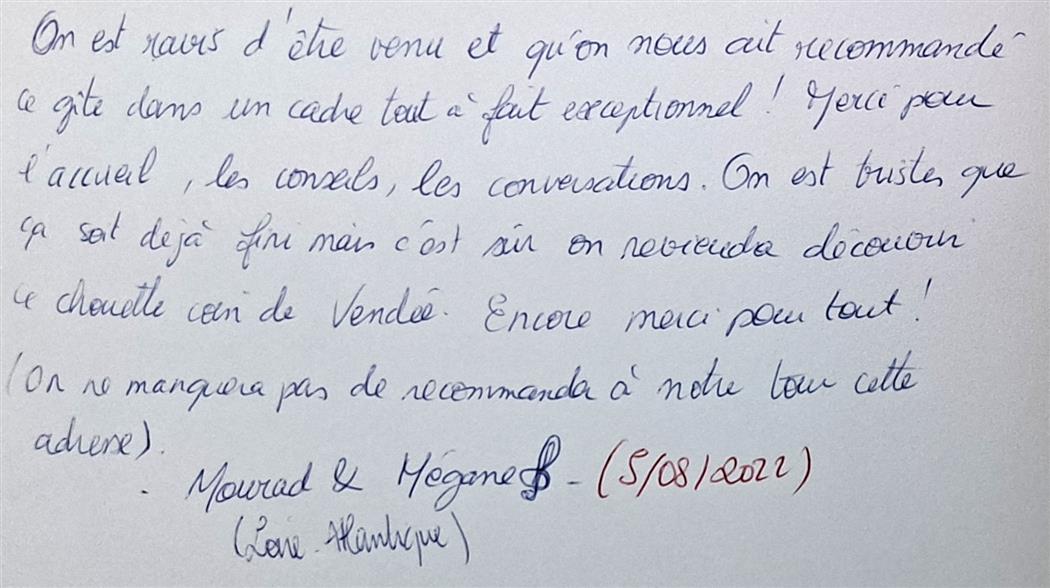 On est ravis d'être venu et qu'on nous ait recommandé
ce gîte dans un cadre tout à fait exceptionnel ! Merci pour
l'accueil, les conseils, les conversations. On est tristes que
ça soit déjà fini mais c'est sûr on reviendra découvrir
ce chouette coin de Vendée. Encore merci pour tout !
(On ne manquera pas de recommander à notre tour cette
adresse).
Mourad & Mégane - (5/08/2022)
(Loire-Atlantique)